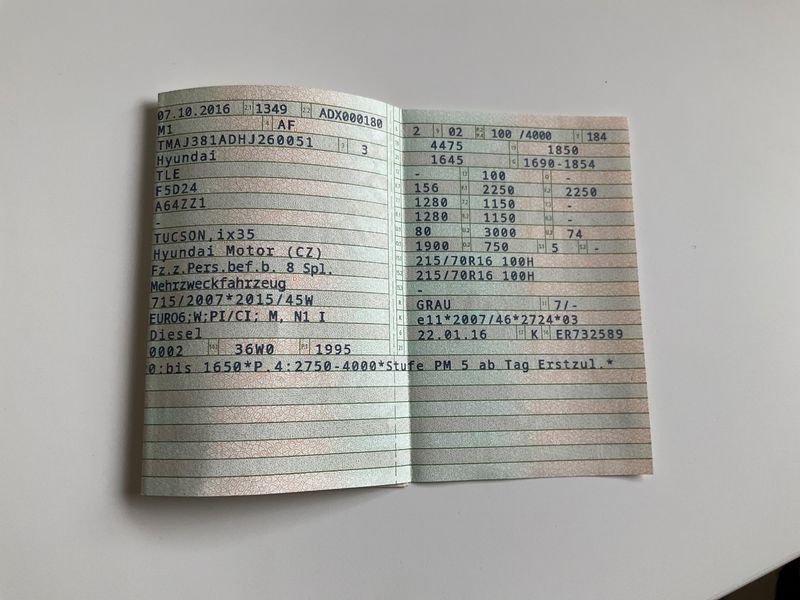 07.10.2016 2.1 1349 2.2 ADX000180
M1 4 AF
TMAJ381ADHJ260051 3 3
Hyundai
TLE
F5D24
A64ZZ1
-
TUCSON,ix35
Hyundai Motor (CZ)
Fz.z.Pers.bef.b. 8 Spl.
Mehrzweckfahrzeug
715/2007*2015/45W
EURO6;W;PI/CI; M, N1 I
Diesel
0002 36W0 1995
0:bis 1650*P.4:2750-4000*Stufe PM 5 ab Tag Erstzul.*
2 9 02 100 /4000 T 184
4475 1850
1645 G 1690-1854
- 100 -
156 2250 2250
1280 1150 -
1280 1150 -
80 3000 74
1900 750 5 -
215/70R16 100H
215/70R16 100H
-
GRAU 7/-
e11*2007/46*2724*03
22.01.16 K ER732589